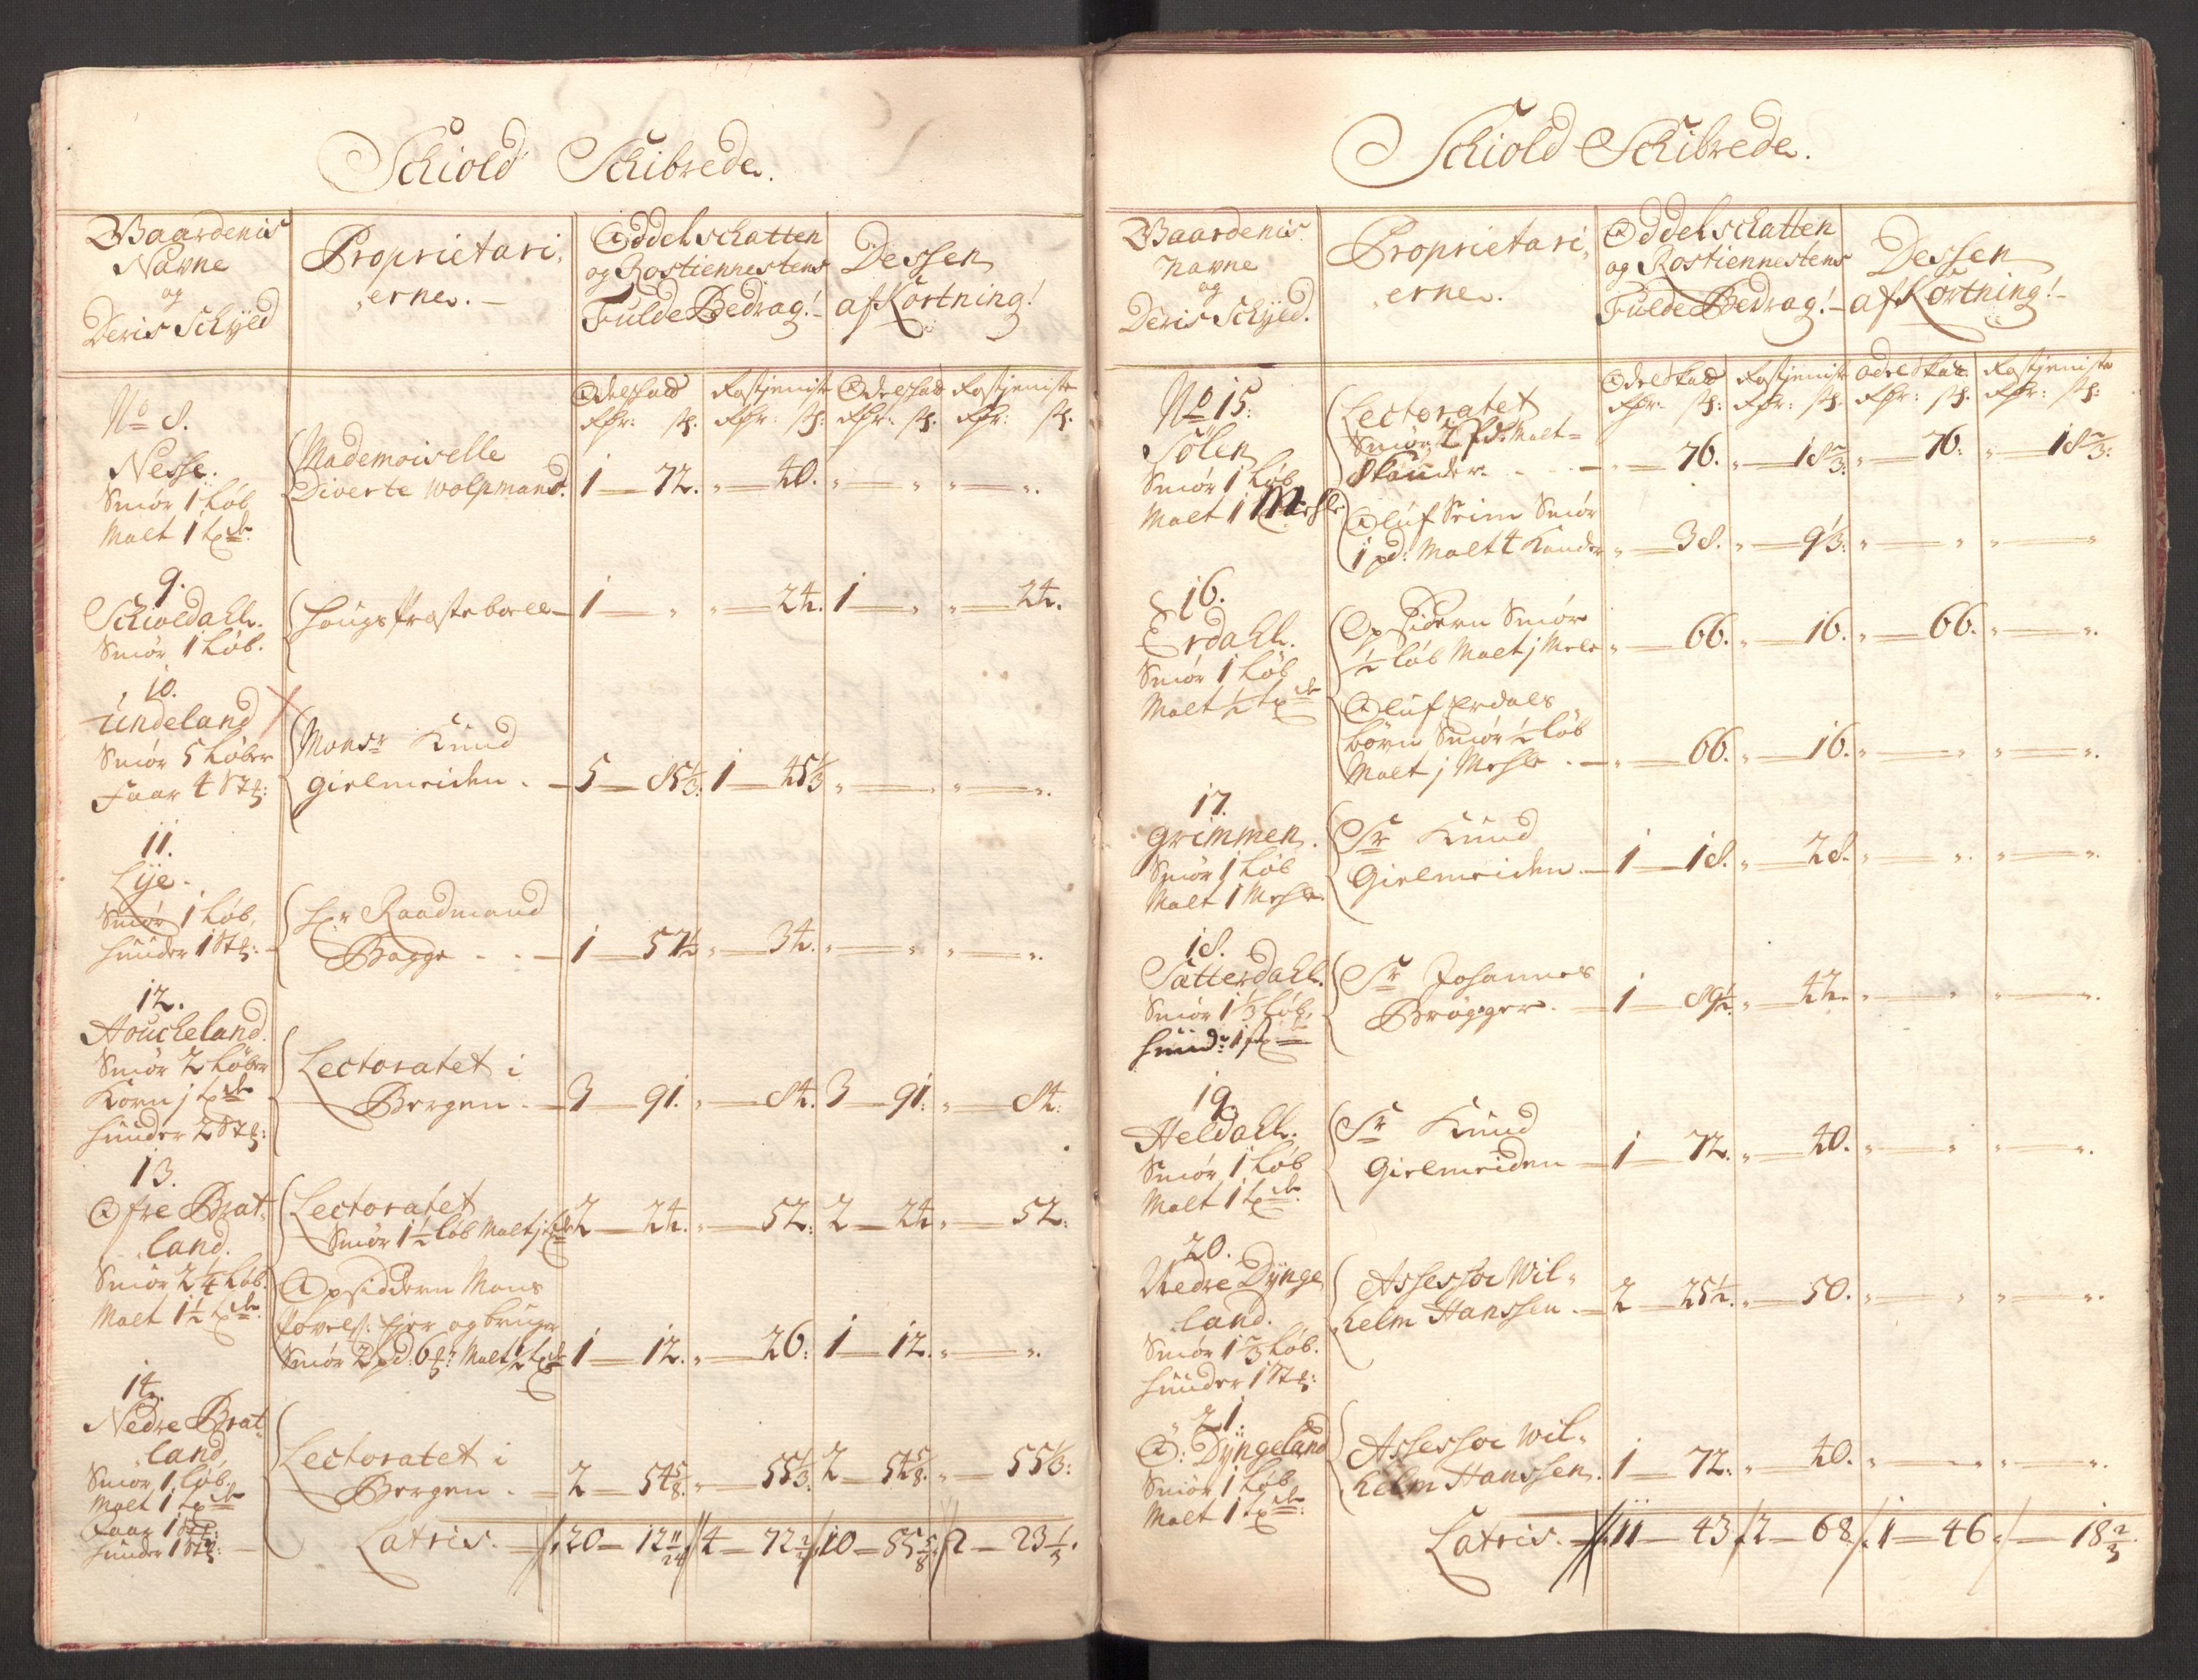 Schiold Schibrede.
Gaardenis
Navne
og
Deris Schyld
Proprietari,
,erne. —
Oddelschatten
og Rostiennestens
Fulde Bedrag! —
Dessen
afKortning!
Odelskatt Rostjeniste Odelskatt Rostjeniste
Rdr: sk. Rdr: sk: Rdr: sk. Rdr: sk.
No 8.
Nesse.
Smör 1 Löb
Malt 1 tde.
Mademoiselle
Diverte Wolpmand. 1 — 72. " — 40. " — " " — ".
9.
Schioldahl.
Smör 1 Löb.
Hougs Præsteboell — 1 — " " — 24. 1 — " " — 24.
10.
Undeland
Smör 5 Löber
Faar 4 St:
Monsr Knud
Gielmeiden. — 5 — 85⅓. 1 — 45⅓ " — " " — ".
11.
Lye.
Smör 1 Löb,
Huuder 1 St: —
Hr Raadmand
Bagge . . — 1 — 57½ " — 34. " — " " — ".
12.
Houcheland.
Smör 2 Löber
Korn j tde
Huuder 2 St:
Lectoratet i
Bergen. — 3 — 91. " — 84. 3 — 91. " — 84.
13.
Ofre Brat,
,land.
Smör 2¼ Löb.
Malt 1½ tde.
Lectoratet
Smör 1½ Löb Malt j tde 2 — 24. " — 52: 2 — 24 " — 52:
Opsiddern Mons
ejer og bruger
Smör 2 pd: 6 Malt ½ tde 1 — 12. " — 26: 1 — 12. " — ".
14.
Nedre Brat,
,land,
Smör 1 Löb,
Malt 1 tde
Faar 1 St:
Huuder 1 St: —
Lectoratet i
Bergen. — 2 — 54⅝. " — 55⅓: 2 — 54⅝. " — 55⅓:
Latris. — 20 — 12 11/24 4 — 72⅔ 10 — 85⅝ 2 — 23⅓.
Schiold Schibrede.
Gaardenis
Navne
og
Deris Schyld.
Proprietari,
,erne.
Oddelschatten
og Rostiennestens
Fulde Bedrag! —
Dessen
afKortning! —
Odelskatt Rostjeniste Odelskatt Rostjeniste
Rdr. sk: Rdr: sk. Rdr: sk. Rdr: sk:
No 15:
Sölen
Smör 1 Löb
Malt 1 Mehle
Lectoratet
Smör 2 pd: Malt
8 Kander. . . — " — 76. " — 18⅔. " — 76: " — 18⅔:
Oluf Seim Smör
1 pd: Malt 4 Kander " — 38. " — 9⅓: " — " " — "
16.
Erdahl.
Smör 1 Löb
Malt ½ tde
Opsiddern Smör
½ Löb Malt j Mele " — 66. " — 16. " — 66. " — ".
Oluf Erdals
börn Smör ½ Löb
Malt j Mehle . — " — 66. " — 16. " — " " — ".
17.
Grimmen.
Smör 1 Löb
Malt 1 Mehle.
Sr Knud
Gielmeiden — 1 — 18. " — 28. " — " " — ".
18.
Sætterdahl.
Smör 1⅓ Löb,
Huud: 1 st
Sr Johannes
Brögger. — 1 — 89½. " — 42. " — " " — ".
19.
Heldahl.
Smör 1 Löb
Malt 1 tde.
Sr Knud
Gielmeiden — 1 — 72. " — 40. " — " " — ".
20.
Nedre Dynge,
,land.
Smör 1⅔ Löb.
Huuder 1 St:
Assessor Wil,
,helm Hanssen. — 2 — 25½. " — 50. " — " " — ".
21.
O: Dyngeland
Smör 1 Löb
Malt 1 tde:
Assessor Wil,
,helm Hanssen. 1 — 72. " — 40. " — " " — ".
Latris. — 11 — 43 2 — 68 1 — 46 — 18⅔.